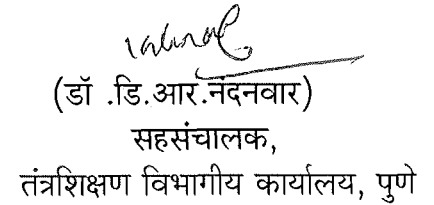 (डॉ .डि.आर.नंदनवार)
सहसंचालक,
तंत्रशिक्षण विभागीय कार्यालय, पुणे